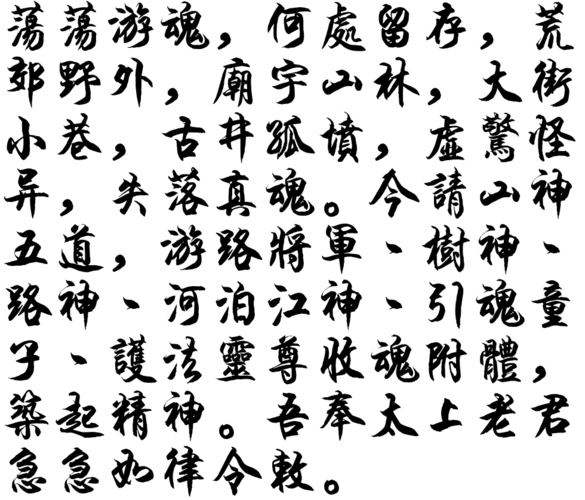 蕩蕩游魂，何處留存，荒
郊野外，廟宇山林，大街
小巷，古井孤墳，虛驚怪
异，失落真魂。今請山神
五道，游路將軍、樹神、
路神、河泊江神、引魂童
子、護法靈尊收魂附體，
築起精神。吾奉太上老君
急急如律令敕。